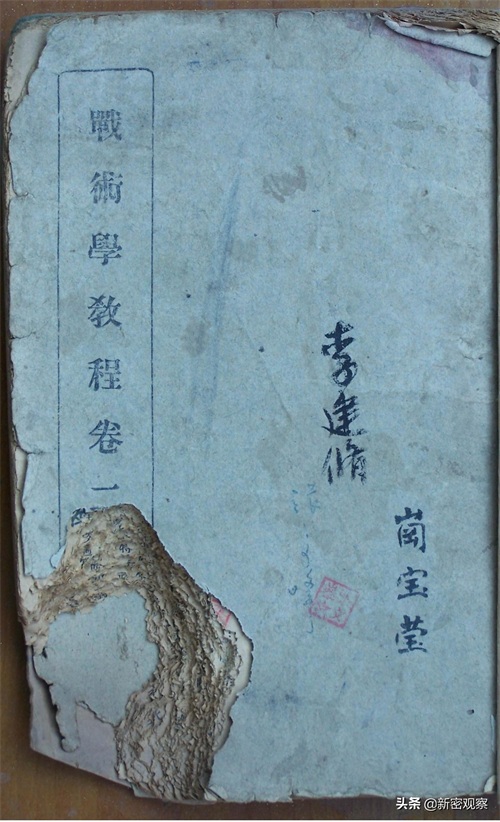 戰術學教程卷一
李建脩
崗宝莹
头条 @新密观察